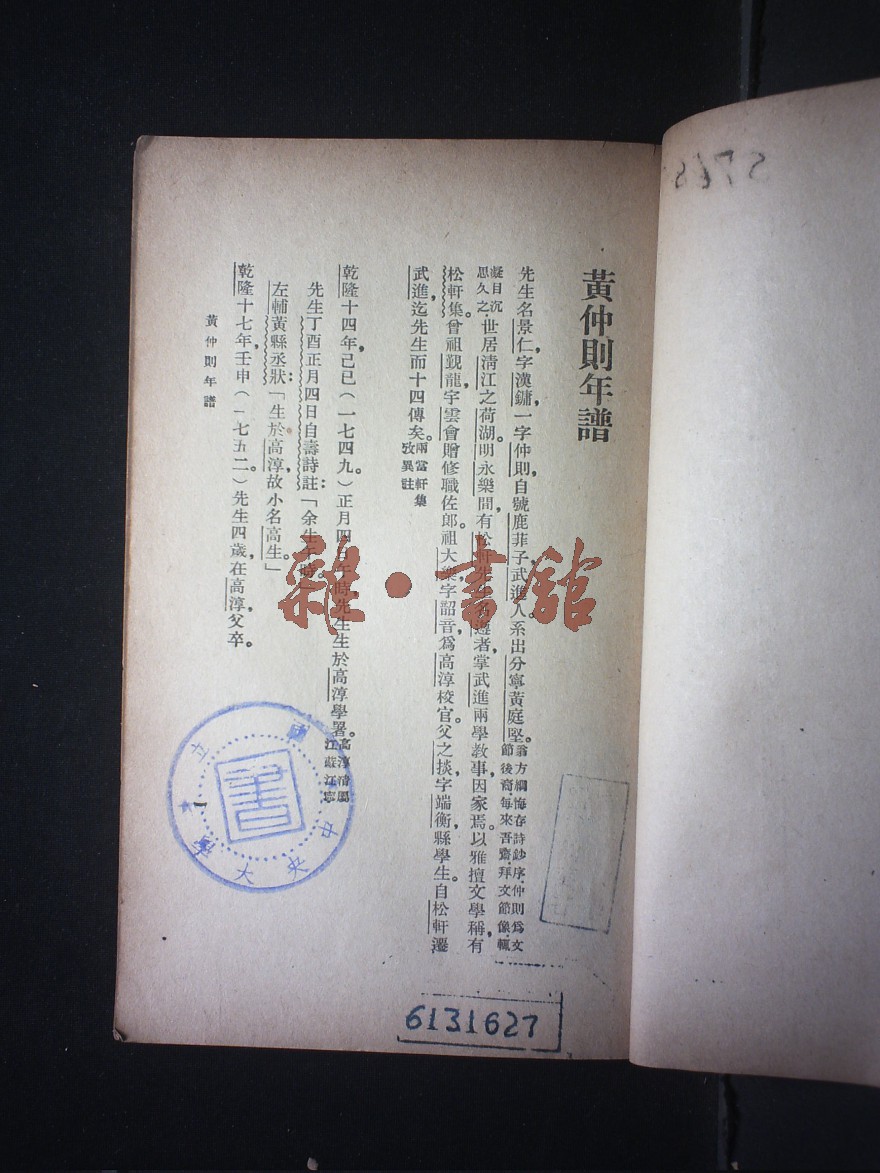 黃仲則年譜
先生名景仁，字漢鏞，一字仲則，自號鹿菲子，武進人。系出分寧黃庭堅。翁方綱悔存詩鈔序，仲則爲文節後裔，每來吾齋，拜文節像，輒
凝目沉思久之。世居淸江之荷湖。明永樂間，有松軒先生名遵者，掌武進兩學敎事，因家焉。以雅擅文學稱，有
松軒集。曾祖覲龍，字雲會，贈修職佐郎。祖大樂，字韶音，爲高淳校官。父之掞，字端衡，縣學生。自松軒遷
武進，迄先生而十四傳矣。兩當軒集攷異註
乾隆十四年，己巳（一七四九）正月四日午時，先生生於高淳學署。高淳淸屬江蘇江寧
先生丁酉正月四日自壽詩註：「余生午時。」
左輔黃縣丞狀：「生於高淳，故小名高生。」
乾隆十七年，壬申（一七五二）先生四歲，在高淳，父卒。
黃仲則年譜
一
6131627
5765
雜·書館
立
中央大
書